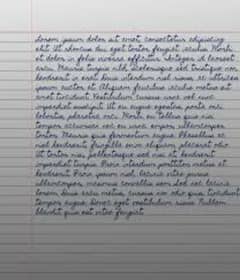 Lorem ipsum dolor sit amet, consectetur adipiscing
elit. Ut rhoncus dui eget tortor feugiat iaculis. Morbi
et dolor in felis viverra efficitur. Integer id laoreet
arcu. Mauris turpis nibh, scelerisque sed tristique non,
hendrerit in erat. Duis interdum nisl risus, ac ultricies
ipsum auctor et. Aliquam faucibus iaculis metus sit
amet tincidunt. Vestibulum cursus urna vel nunc
imperdiet suscipit. Ut eu augue egestas, porta orci
lobortis, pharetra orci. Morbi eu tellus quis nisi
tempor accumsan vel eu ullamcorper
tortor. Mauris quis fermentum augue. Phasellus ac
nisl hendrerit, fringilla enim aliquam, placerat odio.
Ut tortor nisi, pellentesque sed nisi et, hendrerit
imperdiet turpis. Proin interdum porttitor metus et
hendrerit. Proin ipsum nisl, lacinia vitae purus
ullamcorper, maximus convallis sem. Sed nec lacinia
lorem. Duis arcu metus, cursus non odio quis, tincidunt
tempus augue. Donec eget vestibulum risus. Nullam
blandit quis est vitae feugiat.